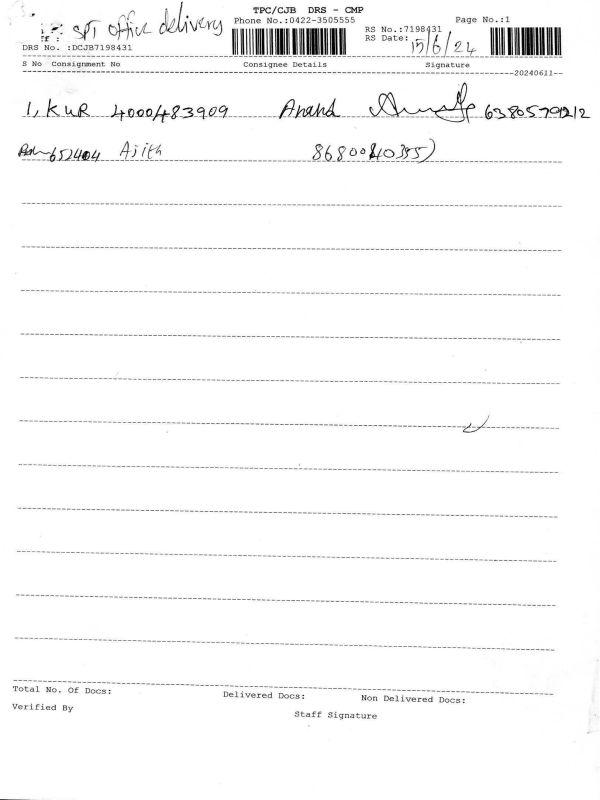 TPC/CJB DRS - CMP
SPT office delivery
Phone No.:0422-3505555
Page No.:1
RS No.:7198431
RS Date: 15/6/24
DRS No. :DCJB7198431
S No Consignment No Consignee Details Signature
20240611
1, KUR 4000483909 Anand 63805791212
652404 Ajith
Total No. Of Docs: Delivered Docs: Non Delivered Docs:
Verified By Staff Signature